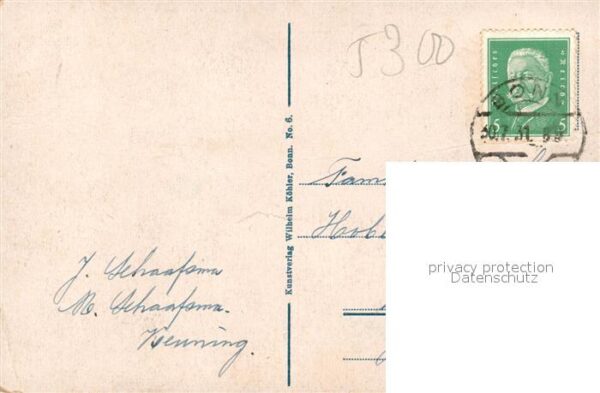 5300
Deutsches Reich
5 5
BONN
30.7.31. 8-9
Kunstverlag Wilhelm Köhler, Bonn. No. 6.
Fam
Hob
J. Schaafsma
M. Schaafsma-
Keuning.
privacy protection
Datenschutz